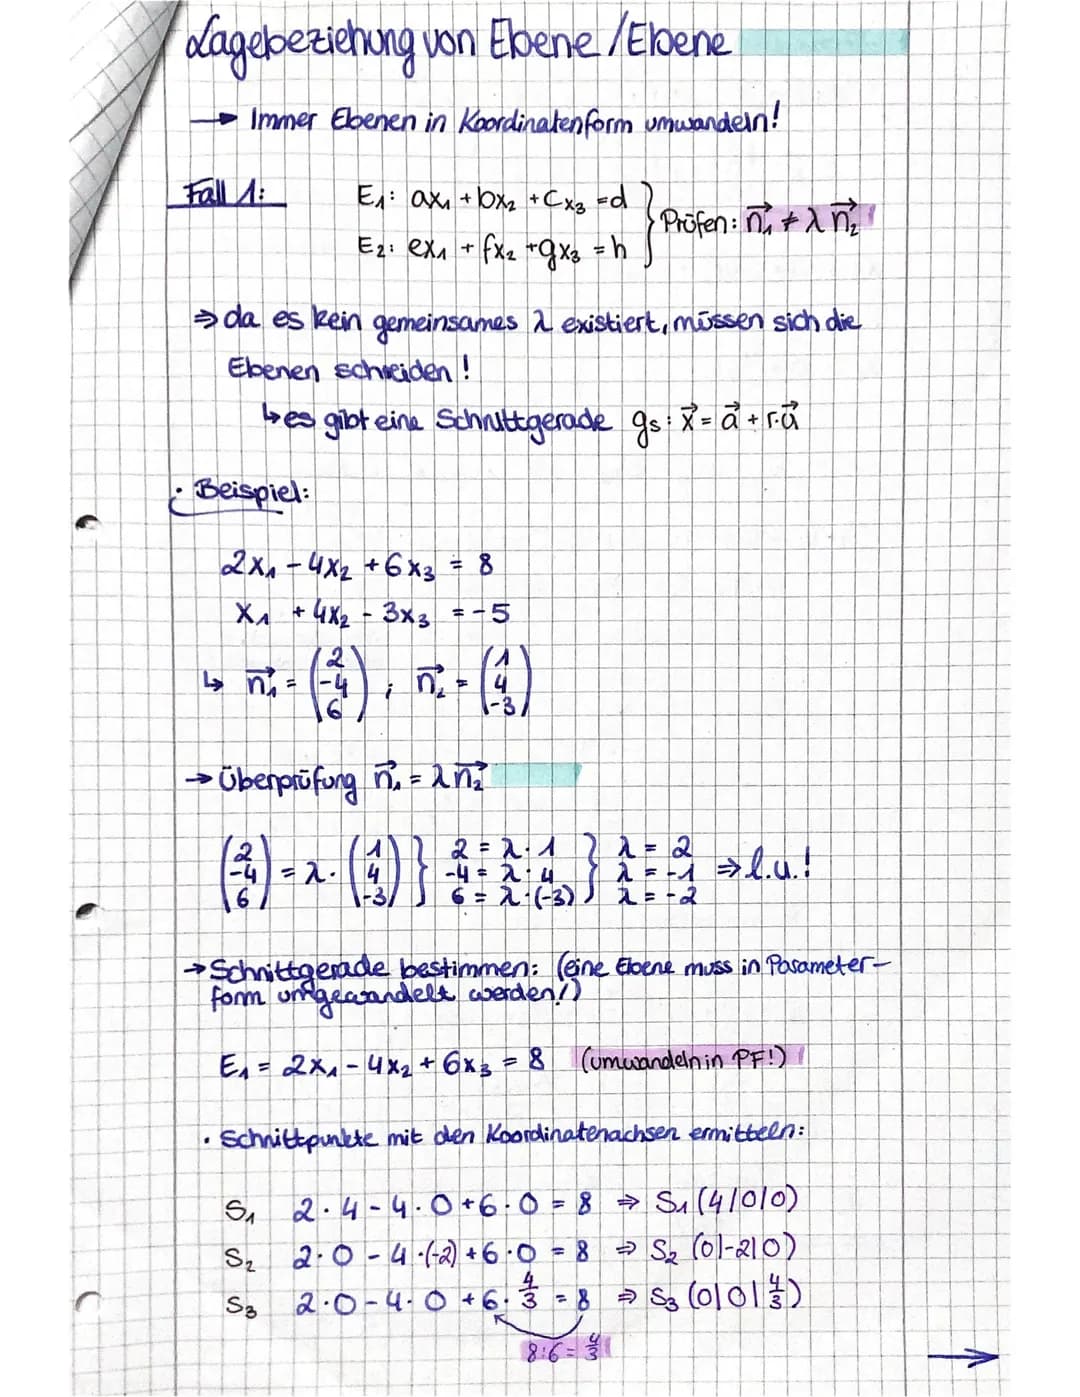 Lagebeziehung von Ebene/Ebene
→ Immer Ebenen in Koordinatenform umwandeln!
Fall 1: E₁: ax₁ + bx₂ + cx₃ = d
E₂: ex₁ + fx₂ + gx₃ = h } Prüfen: n₁⃗ ≠ λ n₂⃗
⇒ da es kein gemeinsames λ existiert, müssen sich die
Ebenen schneiden!
↳ es gibt eine Schnittgerade gs: x⃗ = a⃗ + r·u⃗
· Beispiel:
2x₁ - 4x₂ + 6x₃ = 8
x₁ + 4x₂ - 3x₃ = -5
↳ n₁⃗ = (2 -4 6) ; n₂⃗ = (1 4 -3)
→ Überprüfung n₁⃗ = λ n₂⃗
(2 -4 6) = λ · (1 4 -3) } 2 = λ · 1 } λ = 2
-4 = λ · 4 λ = -1 ⇒ l.u.!
6 = λ · (-3) λ = -2
→ Schnittgerade bestimmen: (eine Ebene muss in Parameter-
form umgewandelt werden!)
E₁ = 2x₁ - 4x₂ + 6x₃ = 8 (umwandeln in PF!)
· Schnittpunkte mit den Koordinatenachsen ermitteln:
S₁ 2 · 4 - 4 · 0 + 6 · 0 = 8 ⇒ S₁ (4|0|0)
S₂ 2 · 0 - 4 · (-2) + 6 · 0 = 8 ⇒ S₂ (0|-2|0)
S₃ 2 · 0 - 4 · 0 + 6 · 4/3 = 8 ⇒ S₃ (0|0|4/3)
8:6 = 4/3
→